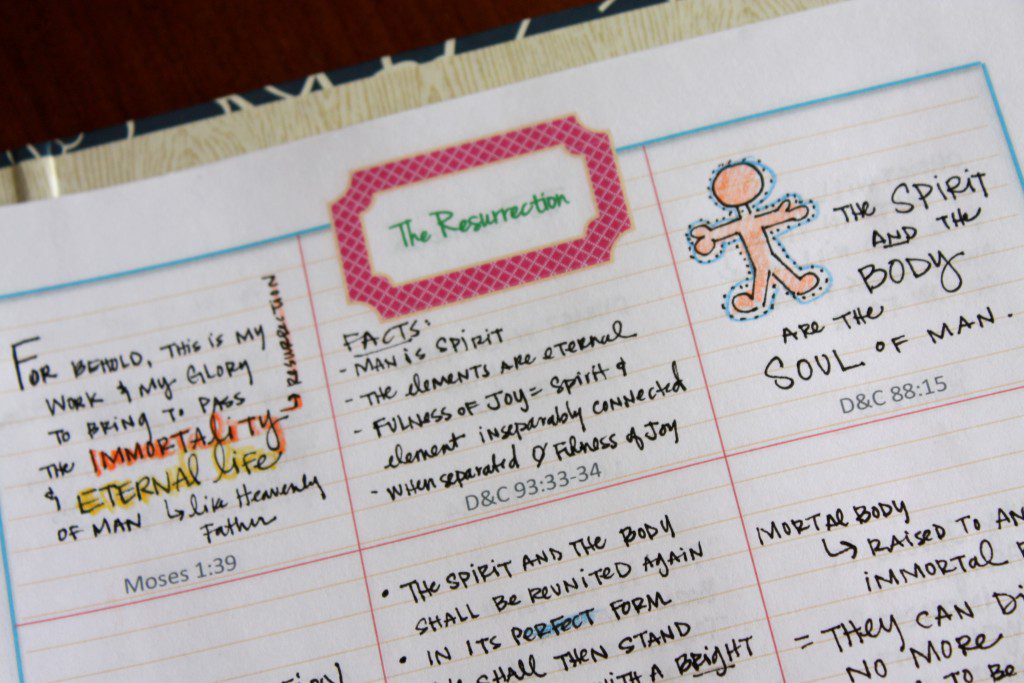 The Resurrection
FOR BEHOLD, THIS IS MY
WORK & MY GLORY
TO BRING TO PASS
THE IMMORTALITY
& ETERNAL life
OF MAN ↳ like Heavenly
Father
↳ RESURRECTION
Moses 1:39
FACTS:
- MAN is SPIRIT
- THE elements ARE eternal
- FULNESS OF JOY = SPIRIT &
element inseparably connected
- WHEN separated Ø Fulness of Joy
D&C 93:33-34
THE SPIRIT
AND THE
BODY
ARE THE
SOUL OF MAN.
D&C 88:15
• THE SPIRIT AND THE BODY
SHALL BE REUNITED AGAIN
IN ITS PERFECT FORM
• SHALL THEN STAND
WITH A BRIGHT
MORTAL BODY
↳ RAISED TO AN
IMMORTAL
= THEY CAN
NO MORE
TO BE